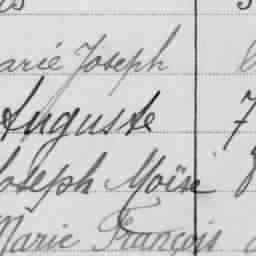 Marie Joseph
Auguste 7
Joseph Moïse 8
Marie François